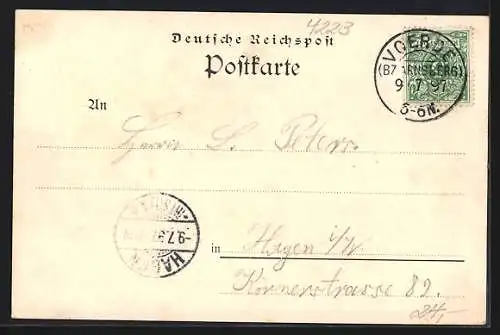 4223
Deutsche Reichspost
Postkarte
VOERDE
(BZ ARNSBERG)
9 7 97
5-6N.
An
Herrn L. Peters.
HAGEN
-9.7.97
in Hagen i/W.
Körnerstrasse 82.
24,-